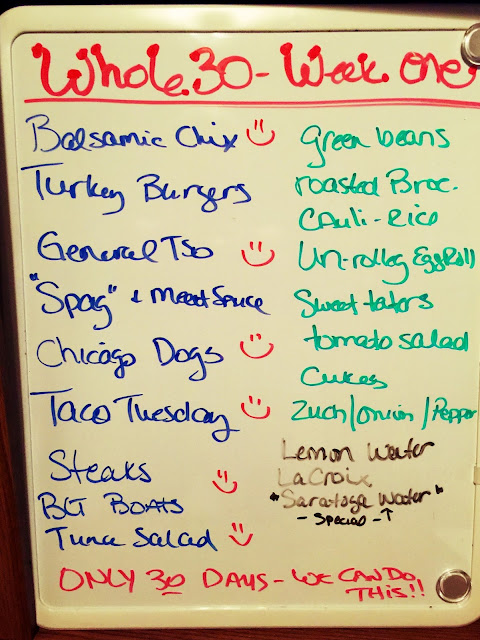 Whole 30 - Week One
Balsamic Chix
Turkey Burgers
General Tso
"Spag" & Meat Sauce
Chicago Dogs
Taco Tuesday
Steaks
BLT BOATS
Tuna Salad
green beans
roasted Broc.
Cauli-Rice
Un-rolled Egg Roll
Sweet taters
tomato salad
Cukes
Zuch/onion/Pepper
Lemon Water
LaCroix
"Saratoga Water"
- Special - ↑
ONLY 30 DAYS - WE CAN DO
THIS!!